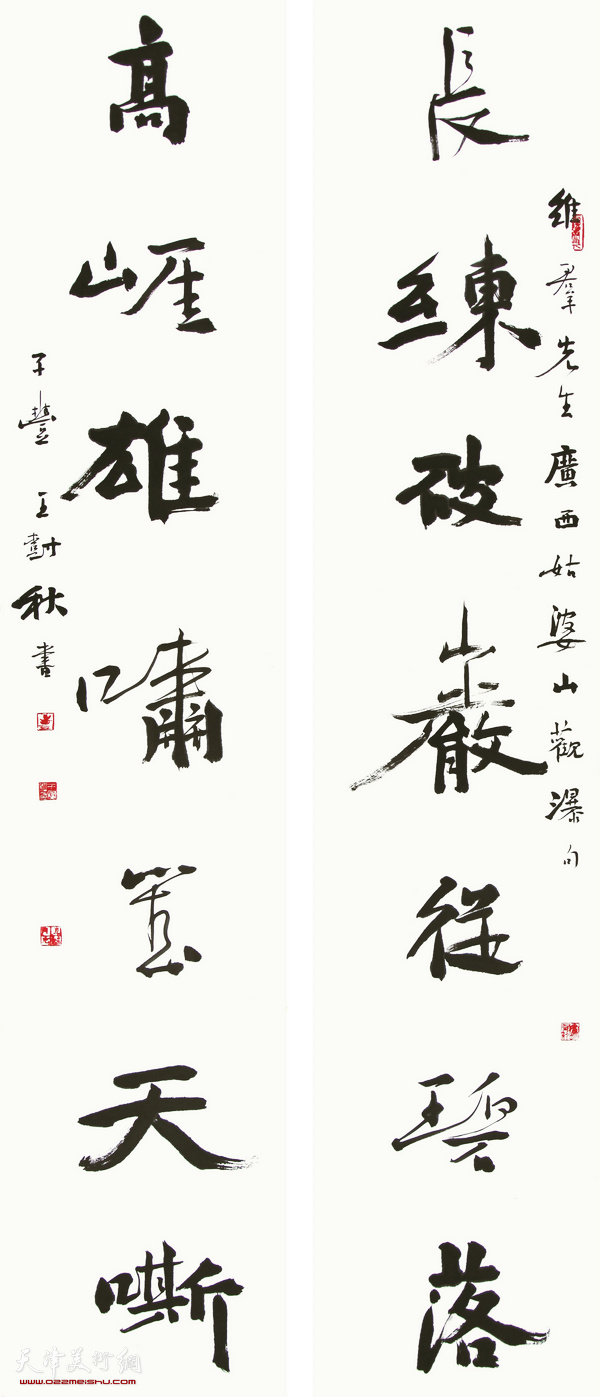 長練破巖從碧落
維羣先生廣西姑婆山觀瀑句
高崕雄嘯薏天嘶
子豐 王樹秋書
天津美术網
www.022meishu.com